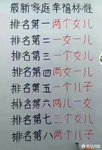 最新家庭幸福标准
排名第一两个女儿
排名第二一女一儿
排名第三一个女儿
排名第四一儿一女
排名第五一个儿子
排名第六两儿一女
排名第七三个女儿
排名第八两个儿子